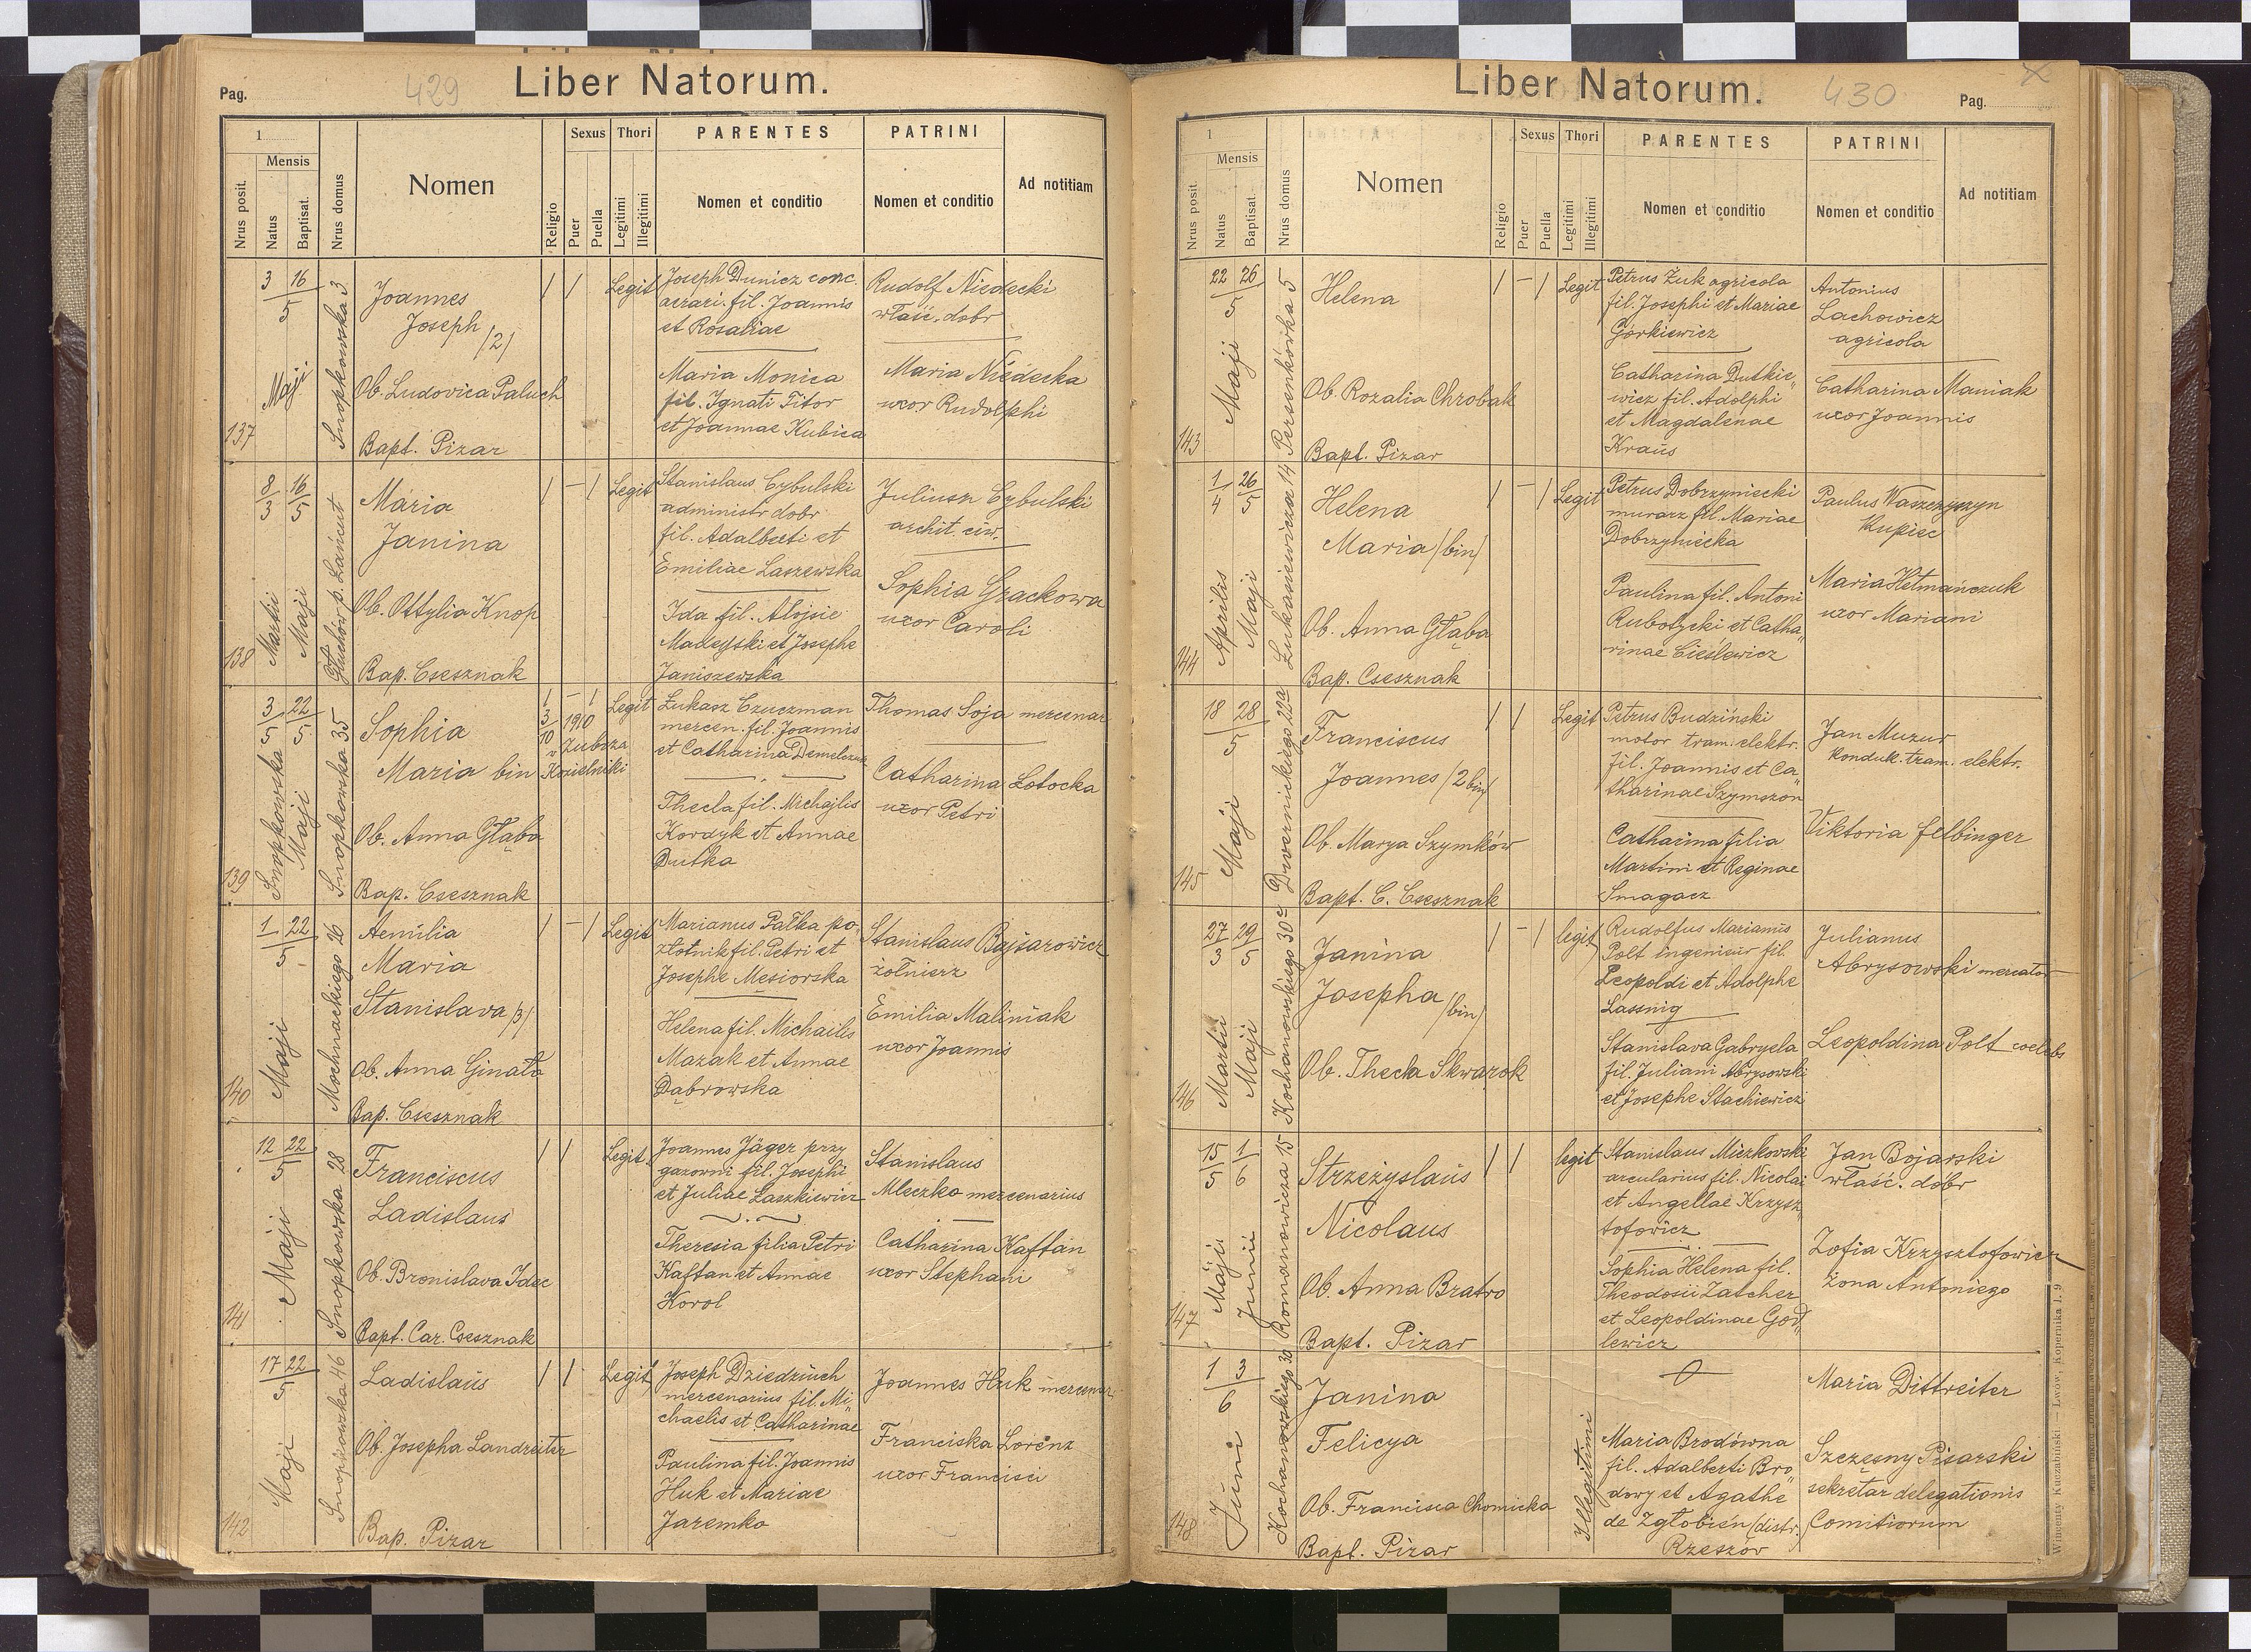 Pag.
429
Liber Natorum.
1
Nrus posit.
Mensis
Natus
Baptisat.
Nrus domus
Nomen
Religio
Sexus
Puer
Puella
Thori
Legitimi
Illegitimi
PARENTES
Nomen et conditio
PATRINI
Nomen et conditio
Ad notitiam
137
3/5 16
Maji
Snopkowska 3
Joannes
Joseph /2/
Ob. Ludovica Paluch
Bapt. Pizar
Legit
Joseph Dunicz conc.
aerari. fil. Joannis
et Rosaliae
Maria Monica
fil. Ignati Titor
et Joannae Kubica
Rudolf Niedecki
właśc. dobr
Maria Niedecka
uxor Rudolphi
138
8/3 16/5
Martii
Maji
Głuchów p. Łańcut
Maria
Janina
Ob. Ottylia Knop
Bap. Csesznak
Legit
Stanislaus Cybulski
administr dobr
fil. Adalberti et
Emiliae Laszewska
Ida fil. Alojsie
Madeyski et Josephe
Janiszewska
Juliusz Cybulski
archit. ciw.
Sophia Grackowa
uxor Caroli
139
3/5 22/5
Snopkowska
Maji
Snopkowska 35
Sophia
Maria bin
Ob. Anna Głąba
Bap. Csesznak
3/10 1910
v Zubrza
Kozielniki
Legit
Łukasz Czuczman
mercen. fil. Joannis
et Catharina Demelczuk
Thecla fil. Michajlis
Kordyk et Annae
Dutka
Thomas Soja mercenar
Catharina Lotocka
uxor Petri
140
1/5 22
Maji
Mochnackiego 26
Aemilia
Maria
Stanislava /3/
Ob. Anna Ginata
Bap. Csesznak
Legit
Marianus Pałka po,,
złotnik fil. Petri et
Josephe Mesiorska
Helena fil. Michailis
Mazak et Annae
Dąbrowska
Stanislaus Bajsarowicz
żołnierz
Emilia Maliniak
uxor Joannis
141
12/5 22
Maji
Snopkowska 28
Franciscus
Ladislaus
Ob. Bronislava Idec
Bapt. Car. Csesznak
Legit.
Joannes Jäger przy
gazowni fil. Josephi
et Juliae Laszkiewicz
Theresia filia Petri
Kaftan et Annae
Korol
Stanislaus
Mleczko mercenarius
Catharina Kaftan
uxor Stephani
142
17/5 22
Maji
Snopkowska 46
Ladislaus
Ob. Josepha Landreiter
Bap. Pizar
Legit
Joseph Dziedziuch
mercenarius fil. Mi,,
chaelis et Catharinae
Paulina fil. Joannis
Huk et Mariae
Jaremko
Joannes Huk mercenar
Franciska Lorenz
uxor Francisci
Liber Natorum.
430
Pag.
1
Nrus posit.
Mensis
Natus
Baptisat.
Nrus domus
Nomen
Religio
Sexus
Puer
Puella
Thori
Legitimi
Illegitimi
PARENTES
Nomen et conditio
PATRINI
Nomen et conditio
Ad notitiam
143
22/5 26
Maji
Persenkówka 5
Helena
Ob. Rozalia Chrobak
Bapt. Pizar
Legit
Petrus Żuk agricola
fil. Josephi et Mariae
Górkiewicz
Catharina Dutkie,,
wicz fil. Adolphi
et Magdalenae
Kraus
Antonius
Lachowicz
agricola
Catharina Maniak
uxor Joannis
144
1/4 26/5
Aprilis
Maji
Łukasiewicza 14
Helena
Maria /bin/
Ob. Anna Głąba
Bap. Csesznak
Legit
Petrus Dobrzyniecki
murarz fil. Mariae
Dobrzyniecka
Paulina fil. Antoni
Rubotycki et Catha,,
rinae Cieślewicz
Paulus Waszczyszyn
Kupiec
Maria Hetmańczuk
uxor Mariani
145
18/5 28
Maji
Dwernickiego 22a
Franciscus
Joannes /2 bin/
Ob. Marya Szymków
Bapt. C. Csesznak
Legit
Petrus Budziński
motor tram. elektr.
fil. Joannis et Ca,,
tharinae Szymszon
Catharina filia
Martini et Reginae
Smagacz
Jan Muzur
konduk. tram. elektr.
Viktoria Felbinger
146
27/3 29/5
Martii
Maji
Kochanowskiego 30c
Janina
Josepha /bin/
Ob. Thecla Skwarok
legit
Rudolfus Marianus
Polt ingenieur fil.
Leopoldi et Adolphe
Lassnig
Stanislava Gabryela
fil. Juliani Abrysowski
et Josephe Stachiewicz
Julianus
Abrysowski mercator
Leopoldina Polt coelebs
147
15/5 1/6
Maji
Junii
Romanowicza 15
Strzeżyslaus
Nicolaus
Ob. Anna Bratro
Bapt. Pizar
legit
Stanislaus Miczkowski
arcularius fil. Nicolai
et Angellae Krzysz,,
tofowicz
Sophia Helena fil.
Theodosii Zatcher
et Leopoldinae God,,
lewicz
Jan Bojarski
właśc. dóbr
Zofia Krzysztofowicz
żona Antoniego
148
1/6 3
Juni
Kochanowskiego 30
Janina
Felicya
Ob. Francisca Chomicka
Bapt. Pizar
Illegitimi
Maria Brodówna
fil. Adalberti Bro,,
dowy et Agathe
de Zgłobień (distr.
Rzeszov
Maria Dittreiter
Szczęsny Pisarski
sekretar delegationis
Comitiorum
Wincenty Kuczabiński — Lwów, Kopernika l. 9